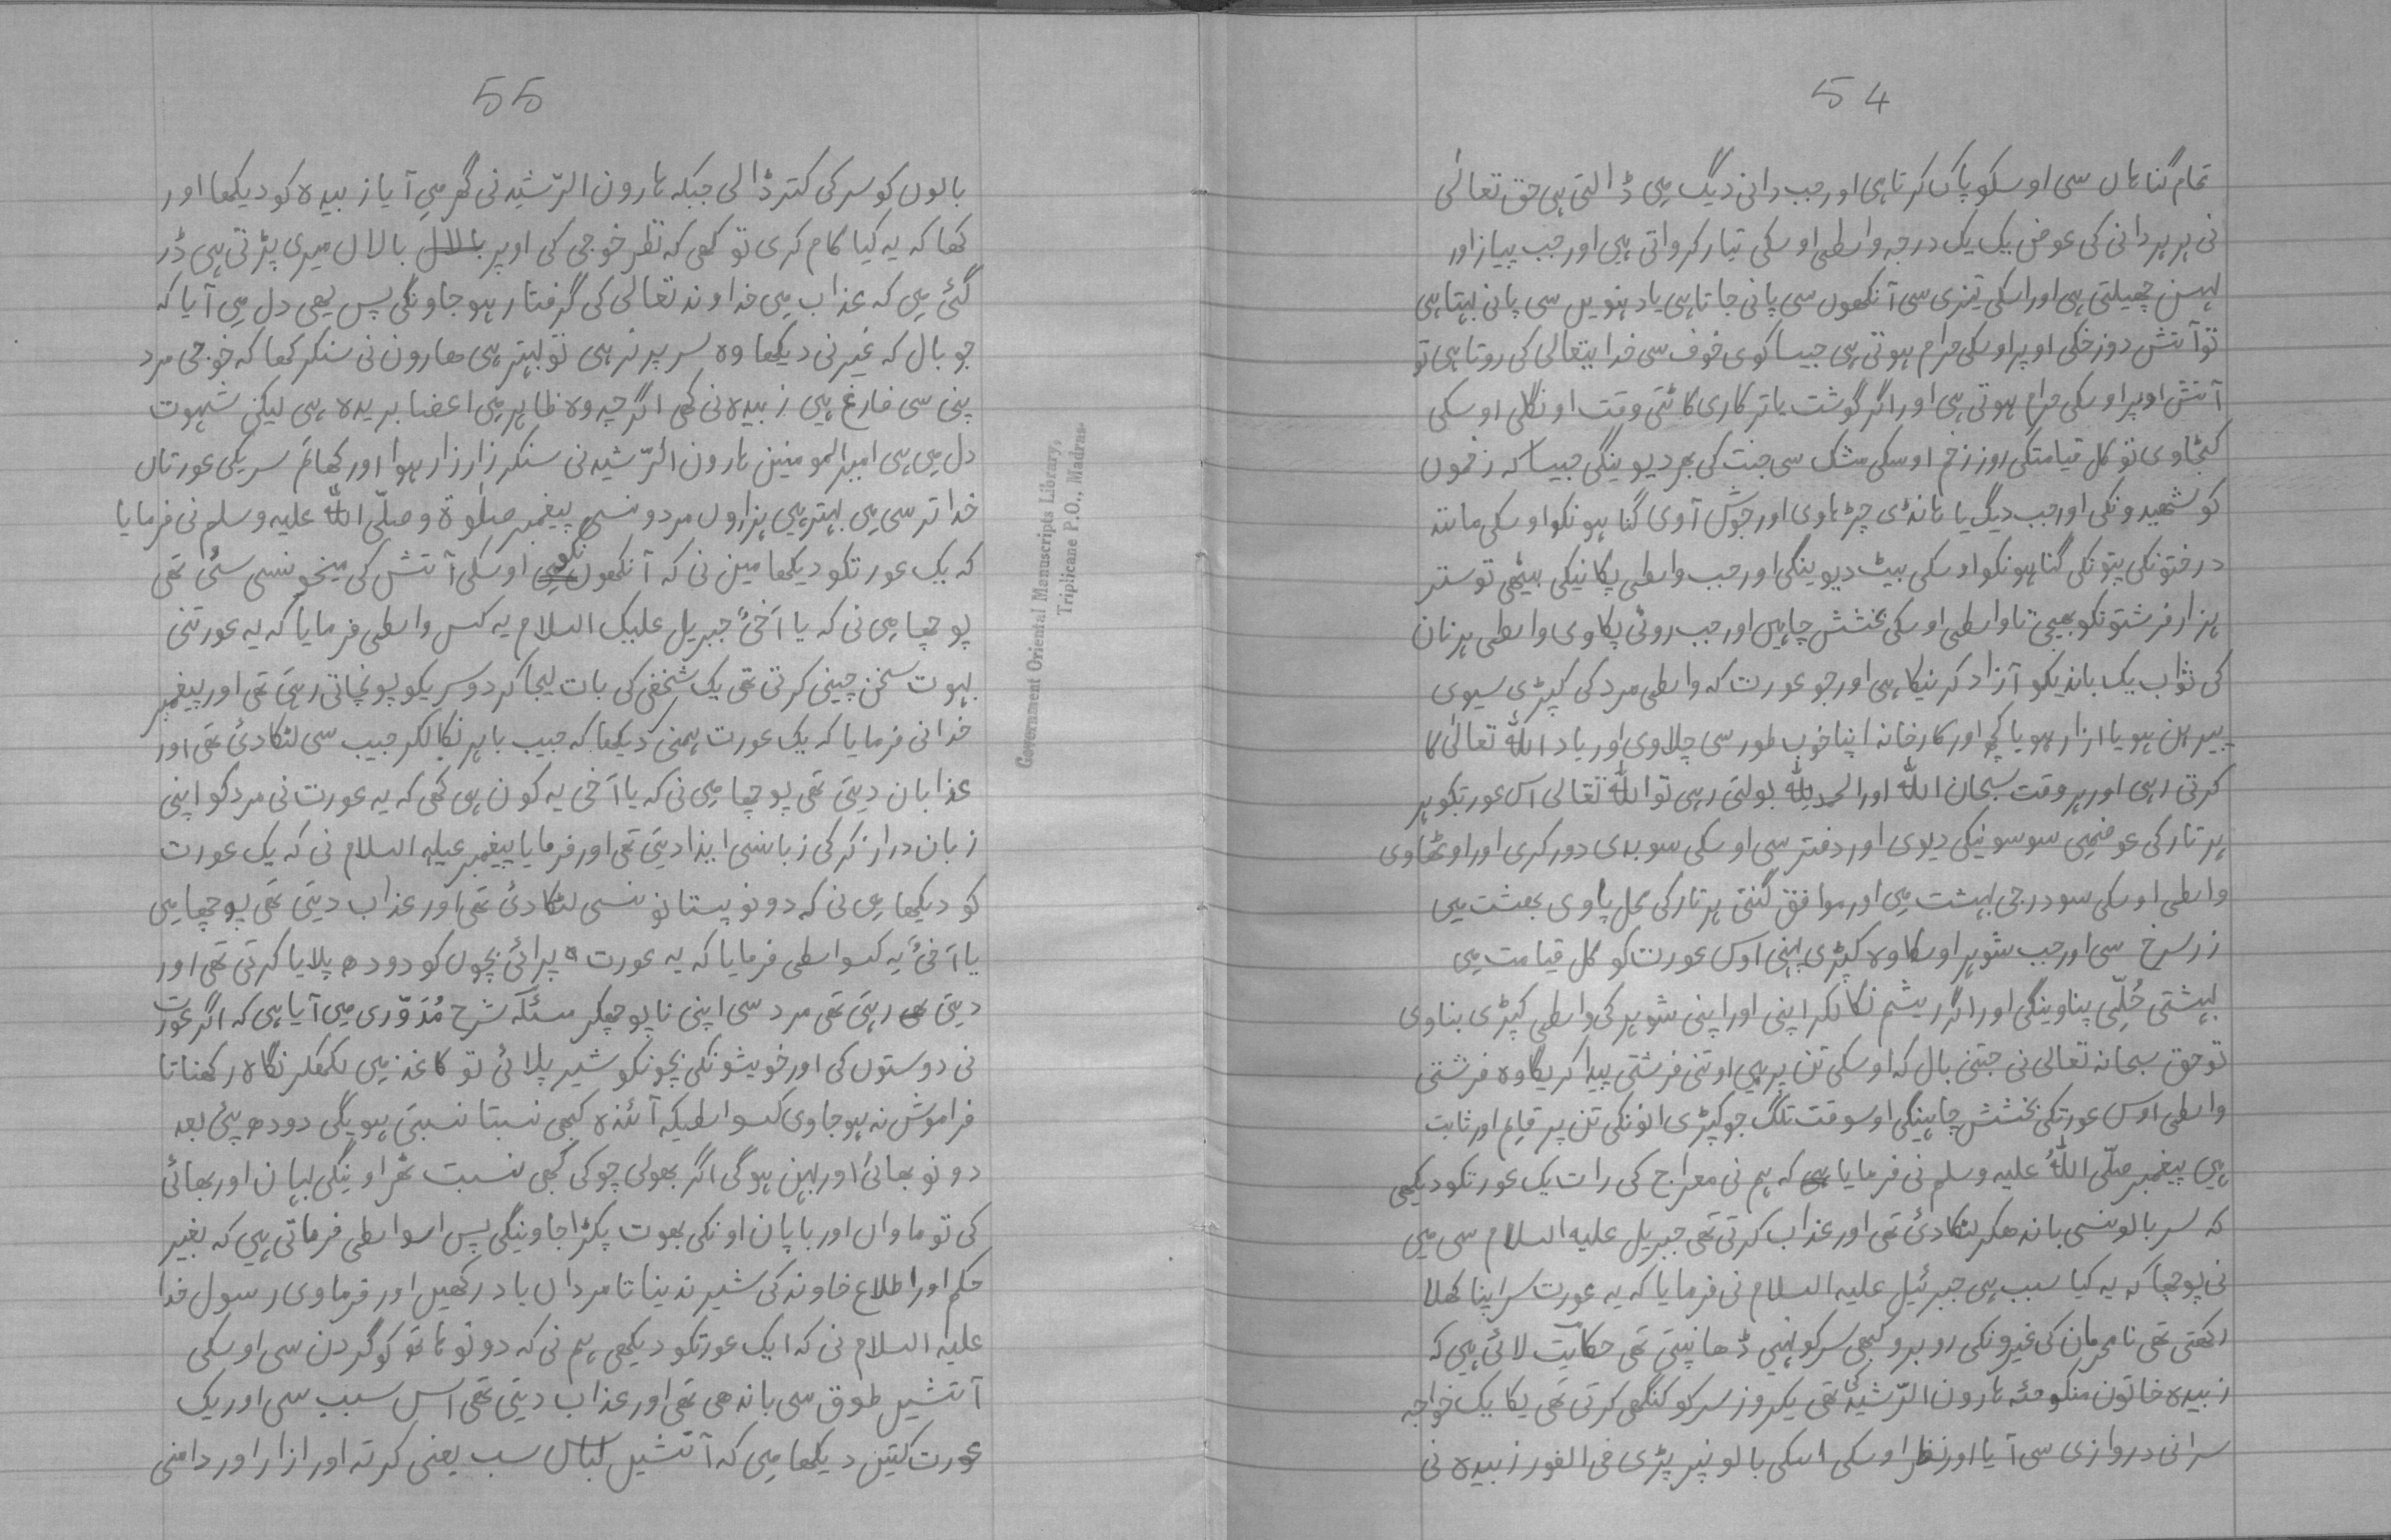 54
تمام گناہاں سی اوسکو پاک کرتا ہی اور جب دانی دیگ میں ڈالتی ہی حق تعالیٰ
نی ہر ہر دانی کی عوض یک یک درجہ واسطی اوسکی تیار کرواتی ہی اور جب پیاز اور
لہسن چھیلتی ہی اور اسکی تیزی سی آنکھوں سی پانی جاتا ہی یا دہنویں سی پانی بہتا ہی
تو آتش دوزخکی اوپر اوسکی حرام ہوتی ہی جیسا کوی خوف سی خدایتعالی کی روتا ہی تو
آتش اوپر اوسکی حرام ہوتی ہی اور اگر گوشت یا ترکاری کاٹتی وقت اونگلی اوسکی
کٹجاوی تو کل قیامتکی روز زخم اوسکی مشک سی جنت کی بھر دیوینگی جیسا کہ زخموں
کو شھیدونکی اور جب دیگ یا ہانڈی چڑہاوی اور جوش آوی گناہونکو اوسکی مانند
درختونکی پتونکی گناہونکو اوسکی بیٹ دیوینگی اور جب واسطی پکانیکی بیٹھی تو ستر
ہزار فرشتونکو بھیجی تا واسطی اوسکی بخشش چاہیں اور جب روٹی پکاوی واسطی ہر نان
کی ثواب یک باندیکو آزاد کرنیکا ہی اور جو عورت کہ واسطی مرد کی کپڑی سیوی
پیرہن ہو یا ازار ہو یا کچھ اور کارخانہ اپنا خوب طور سی چلاوی اور یاد اللہ تعالیٰ کا
کرتی رہی اور ہر وقت سبحان اللہ اور الحمد للہ بولتی رہی تو اللہ تعالی اس عورتکو ہر
ہر تار کی عوضمیں سو سو نیکی دیوی اور دفتر سی اوسکی سو بدی دور کری اور اوٹھاوی
واسطی اوسکی سو درجی بہشت میں اور موافق گنتی ہر تار کی محل پاوی بھشت میں
زر سرخ سی اور جب شوہر اوسکا وہ کپڑی پہنی اوس عورت کو کل قیامت میں
بہشتی حُلّی پناوینگی اور اگر ریشم نکالکر اپنی اور اپنی شوہر کی واسطی کپڑی بناوی
تو حق سبحانہ تعالی نی جتنی بال کہ اوسکی تن پر ہیں اوتنی فرشتی پیدا کریگا وہ فرشتی
واسطی اوس عورتکی بخشش چاہینگی اوسوقت تلگ جو کپڑی انونکی تن پر قایم اور ثابت
ہیں پیغمبر صلّی اللہُ علیہ وسلم نی فرمایا کہ ہم نی معراج کی رات یک عورتکو دیکھی
کہ سر بالونسی باندھکر لٹکادئی تھی اور عذاب کرتی تھی جبریل علیہ السلام سی میں
نی پوچھا کہ یہ کیا سبب ہی جبرئیل علیہ السلام نی فرمایا کہ یہ عورت سر اپنا کھلا
رکھتی تھی نامحرمان کی غیرونکی روبرو کبھی سر کو نہیں ڈھانپتی تھی حکایت لائی ہیں کہ
زبیدہ خاتون منکوحئہ ہارون الرّشیدکی تھی یکروز سر کو کنگھی کرتی تھی یکایک خواجہ
سرا نی دروازی سی آیا اور نظر اوسکی اسکی بالونپر پڑی فی الفور زبیدہ نی
55
بالوں کو سر کی کتر ڈالی جبکہ ہارون الرّشید نی گھر میں آیا زبیدہ کو دیکھا اور
کھا کہ یہ کیا کام کری تو کھی کہ نظر خوجی کی اوپر بالاں میری پڑتی ہی ڈر
گئی میں کہ عذاب میں خداوند تعالی کی گرفتار ہو جاونگی پس یھی دل میں آیا کہ
جو بال کہ غیر نی دیکھا وہ سر پر نرہی تو بہتر ہی ھارون نی سنکر کھا کہ خوجی مرد
پنی سی فارغ ہیں زبیدہ نی کھی اگرچہ وہ ظاہر میں اعضا بریدہ ہی لیکن شہوت
دل میں ہی امیر المومنین ہارون الرّشید نی سنکر زار زار ہوا اور کھا تم سریکی عورتاں
خدا ترسی میں بہتر ہیں ہزاروں مردونسی پیغمبر صلٰوۃ وصلّی اللہ علیہ وسلم نی فرمایا
کہ یک عورتکو دیکھا مین نی کہ آنکھونکو اوسکی آتش کی میخونسی سئی تھی
پوچھا میں نی کہ یا اَخیْ جبریل علیک السلام یہ کس واسطی فرمایا کہ یہ عورتنی
بہوت سخن چینی کرتی تھی یک شخص کی بات لیجاکر دوسریکو پونچاتی رہتی تھی اور پیغمبر
خدا نی فرمایا کہ یک عورت ہمنی دیکھا کہ جیب باہر نکالکر جیب سی لٹکادئی تھی اور
عذابان دیتی تھی پوچھا میں نی کہ یا اَخی یہ کون ہی کھی کہ یہ عورت نی مرد کو اپنی
زبان دراز کر کی زبانسی ایذا دیتی تھی اور فرمایا پیغمبر علیہ السلام نی کہ یک عورت
کو دیکھا میں نی کہ دونو پستانونسی لٹکادئی تھی اور عذاب دیتی تھی پوچھا میں
یا اَخیْ یہ کسواسطی فرمایا کہ یہ عورت پرائی بچوں کو دودھ پلایا کرتی تھی اور
دیتی رہتی تھی مرد سی اپنی ناپوچھکر مسئلہ شرح مُدَوّری میں آیا ہی کہ اگر عورت
نی دوستوں کی اور خویشونکی بچونکو شیر پلائی تو کاغذ میں لکھکر نگاہ رکھنا تا
فراموش نہ ہو جاوی کسواسطیکہ آئندہ کبھی نسبتا نسبتی ہویگی دودھ پئی بعد
دونو بھائی اور بہن ہوگی اگر بھولی چوکی کبھی نسبت ٹھراوینگی بہان اور بھائی
کی تو ماواں اور باپان اونکی بھوت پکڑا جاوینگی پس اسواسطی فرماتی ہیں کہ بغیر
حکم اور اطلاع خاوند کی شیر ندینا تا مرداں یاد رکھیں اور فرماوی رسول خدا
علیہ السلام نی کہ ایک عورتکو دیکھی ہم نی کہ دونو ہاتھ کو گردن سی اوسکی
آتشیں طوق سی باندھی تھی اور عذاب دیتی تھی اس سبب سی اور یک
عورت کتیں دیکھا میں کہ آتشیں لباس سب یعنی کرتہ اور ازار اور دامنی
Government Oriental Manuscripts Library,
Triplicane P.O., Madras.